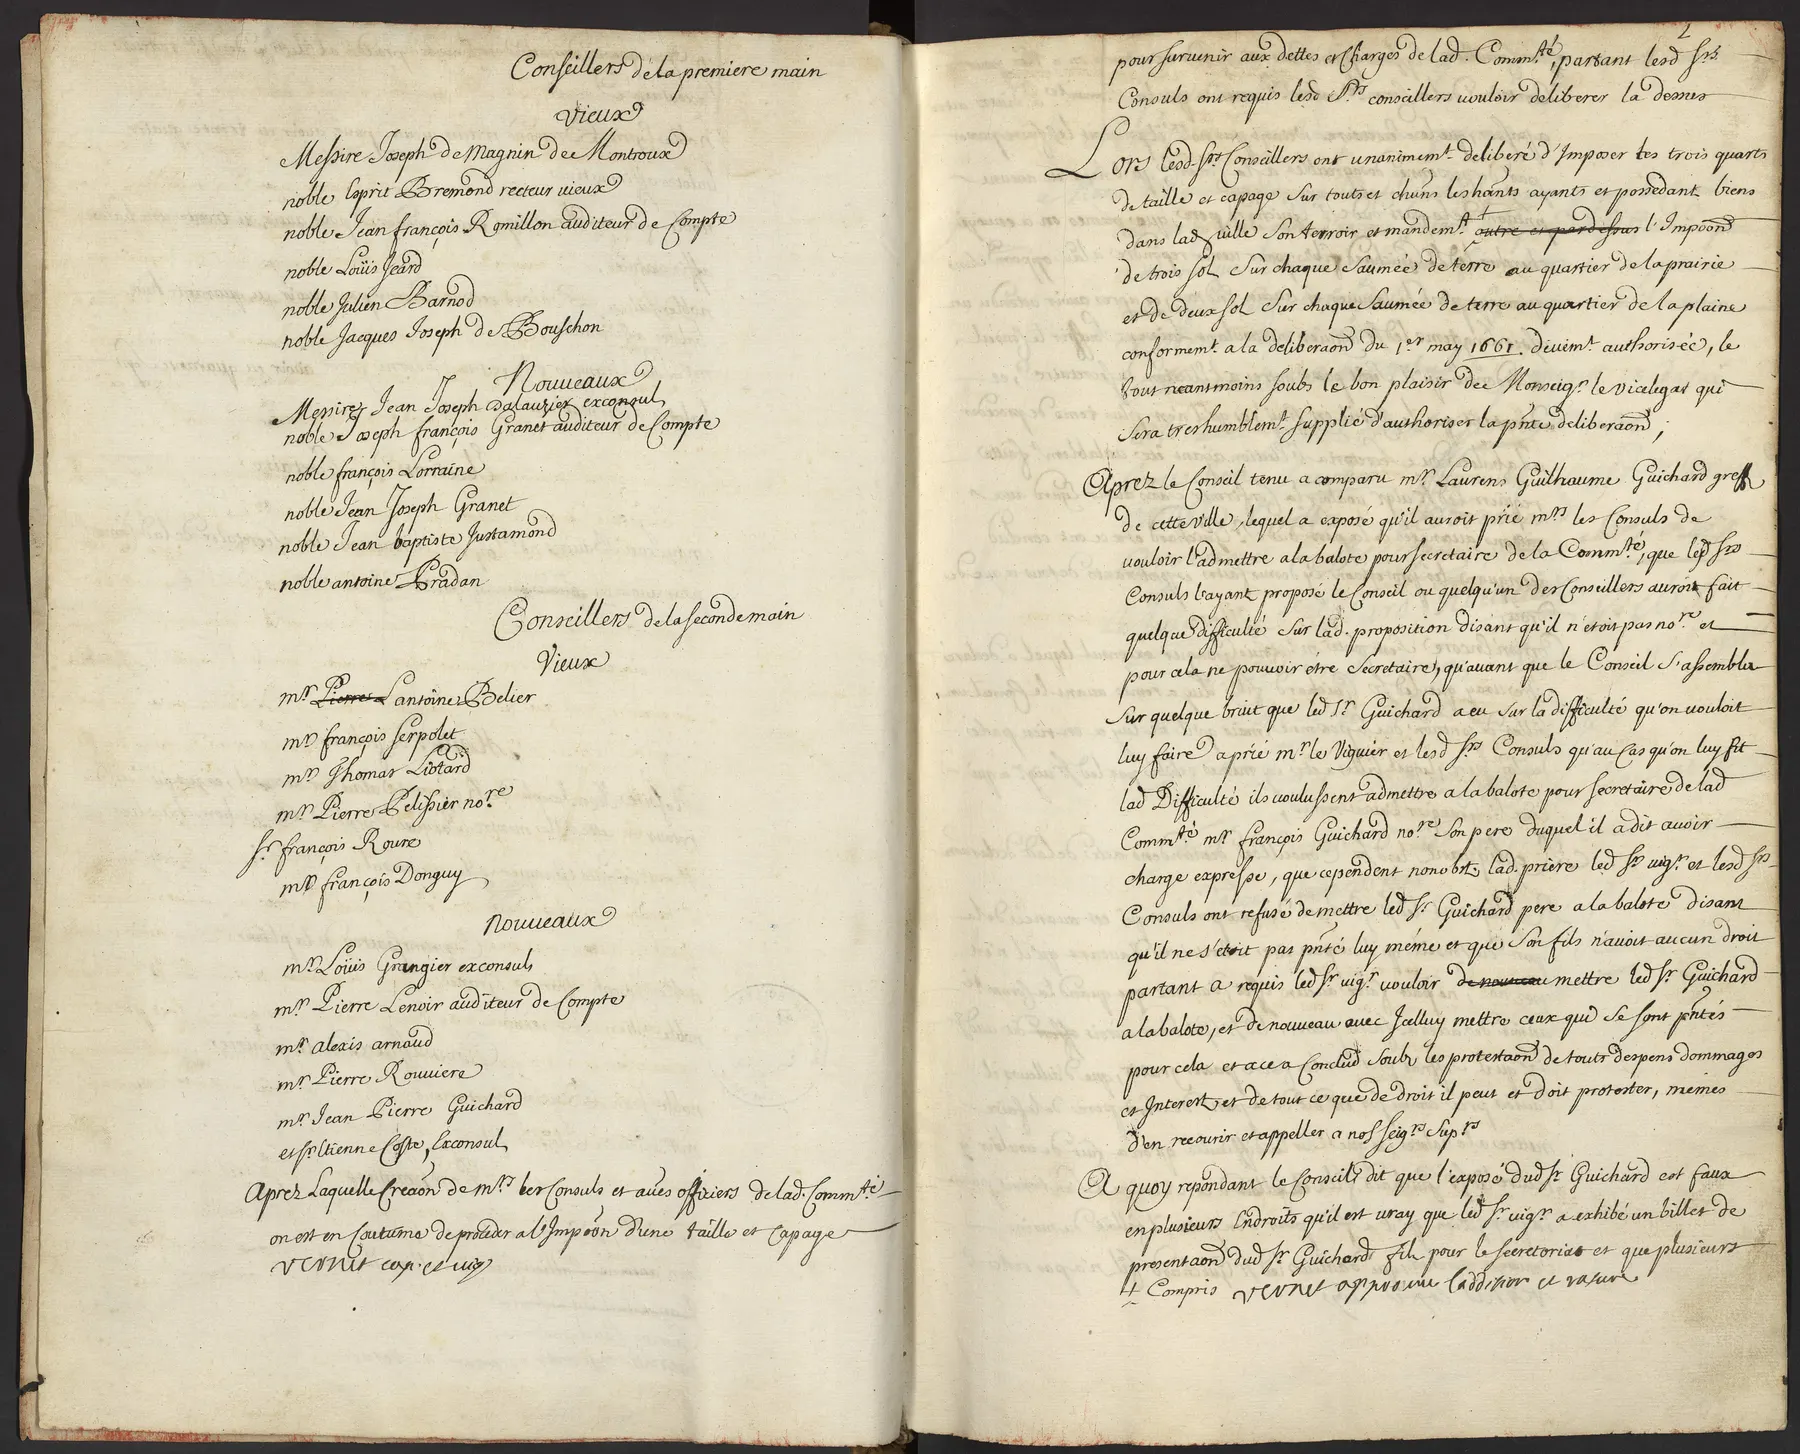 Conseillers de la premiere main
Vieux
Messire Joseph de Magnin de Montroux
noble Esprit Bremond recteur vieux
noble Jean françois Romillon auditeur de Compte
noble Loüis Jeard
noble Julien Barnod
noble Jacques Joseph de Bouschon
Nouueaux
Messire Jean Joseph exconsul
noble Joseph françois Granet auditeur de Compte
noble françois Lorraine
noble Jean Joseph Granet
noble Jean baptiste Justamond
noble antoine Pradan
Conseillers de la seconde main
Vieux
mr Pierre L antoine Belier
mr françois Serpolet
mr Thomas Liotard
mr Pierre Pelissier nore
sr françois Roure
mr françois Donguy
Nouueaux
mr Loüis Grangier exconsul
mr Pierre Lenoir auditeur de Compte
mr alexis arnaud
mr Pierre Rouuiere
mr Jean Pierre Guichard
et sr Etienne Coste, Exconsul
Aprez Laquelle Creaõn de mrs les Consuls et aues officiers de lad. Commté
on est en Coutume de proceder a l'Impoõn d'une taille et Capage
vernet cap. et vig
2
pour suruenir aux dettes et Charges de lad. Commté, partant lesd srs
Consuls ont requis lesd srs conseillers uouloir deliberer la dessus
Lors lesd. srs Conseillers ont unanimemt deliberé d'Imposer les trois quarts
de taille et capage sur touts et chuns les hãnts ayants et possedant biens
dans lad ville son terroir et mandemt ‡ outre et par dessus l'Impoõn
de trois sol sur chaque saumée de terre au quartier de la prairie
et de deux sol sur chaque saumée de terre au quartier de la plaine
conformemt a la deliberaõn du 1er may 1661. düemt authorisée, le
tout neantmoins soubs le bon plaisir de Monseigr le vicelegat qui
sera tres humblemt supplié d'authoriser la pñte deliberaõn;
Aprez le Conseil tenu a comparu mr Laurens Guilhaume Guichard greff
de cette ville, lequel a exposé qu'il auroit prié mrs les Consuls de
uouloir l'admettre a la balote pour secretaire de la Commté, que lesd srs
Consuls l'ayant proposé le Conseil ou quelqu'un des Conseillers auroit fait
quelque difficulté sur lad. proposition disant qu'il n'étoit pas nore et
pour cela ne pouuoir étre secretaire, qu'auant que le Conseil s'assembla
sur quelque bruit que led sr Guichard a eu sur la difficulté qu'on uouloit
luy faire a prié mr le Viguier et lesd srs Consuls qu'au cas qu'on luy fit
lad Difficulté ils uoulussent admettre a la balote pour secretaire de lad
Commté mr françois Guichard nore son pere duquel il a dit auoir
charge expresse, que cependent nonobst. lad. priere led sr uigr et lesd srs
Consuls ont refusé de mettre led sr Guichard pere a la balote disant
qu'il ne s'etoit pas pñté luy méme et que son fils n'auoit aucun droit
partant a requis led sr uigr uouloir de nouueau mettre led sr Guichard
a la balote, et de nouueau auec Icelluy mettre ceux qui se sont pñtés
pour cela et a ce a Conclud soubs les protestaõn de touts despens dommages
et Interest et de tout ce que de droit il peut et doit protester, mémes
d'en recourir et appeller a nosseigrs suprs
A quoy repondant le Conseil dit que l'exposé dud sr Guichard est faux
en plusieurs Endroits qu'il est uray que led sr uigr a exhibé un billet de
presentaõn dud sr Guichard fils pour le secretoriat et que plusieurs
‡ Compris vernet approuue l'addition et rature